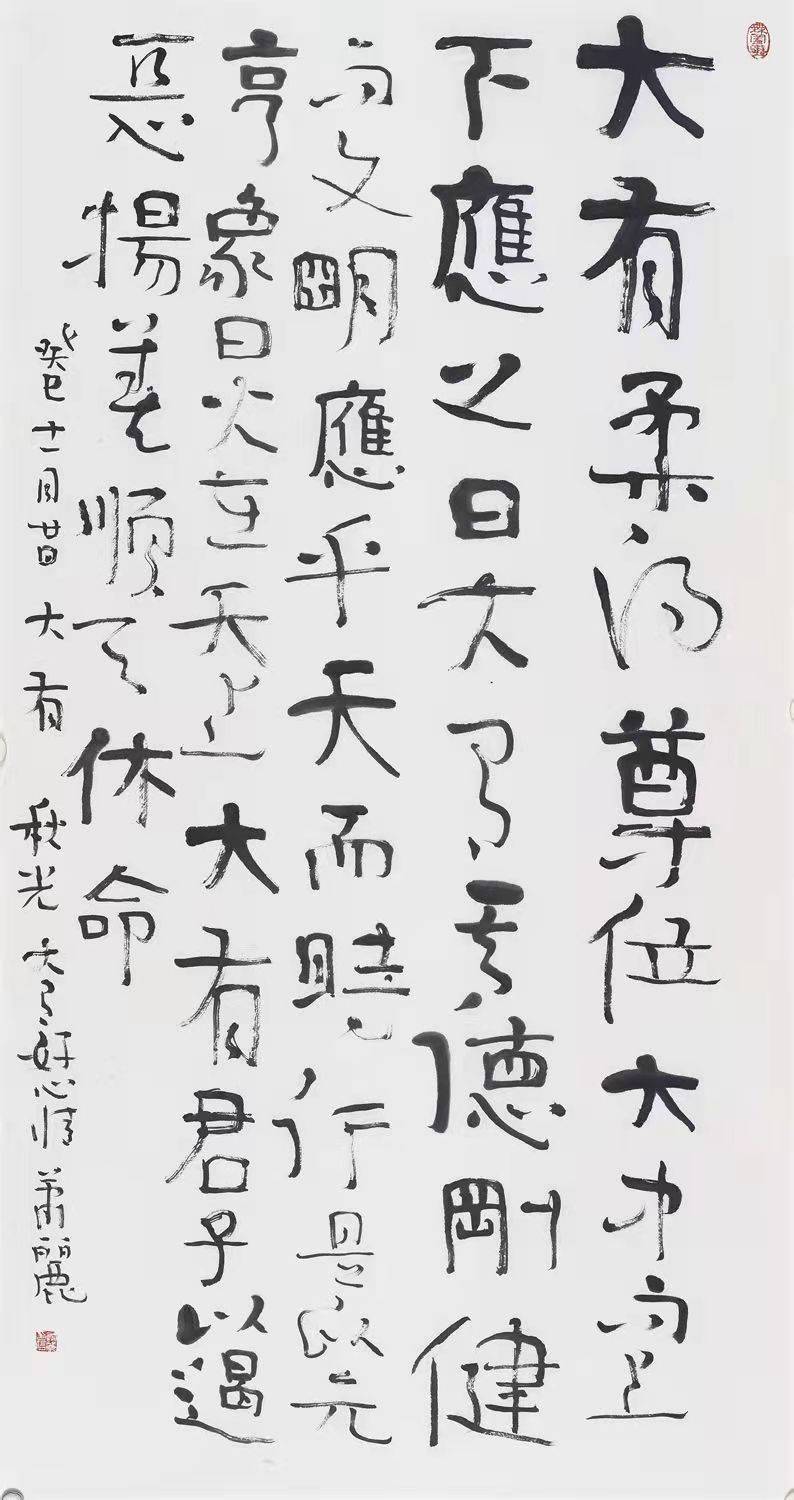 大有柔得尊位大中而上
下應之曰大有其德剛健
而文明應乎天而時行是以元
亨象曰火在天上大有君子以遏
惡揚善順天休命
癸巳十一月廿日 大有 秋光 大有好心情 蕭麗